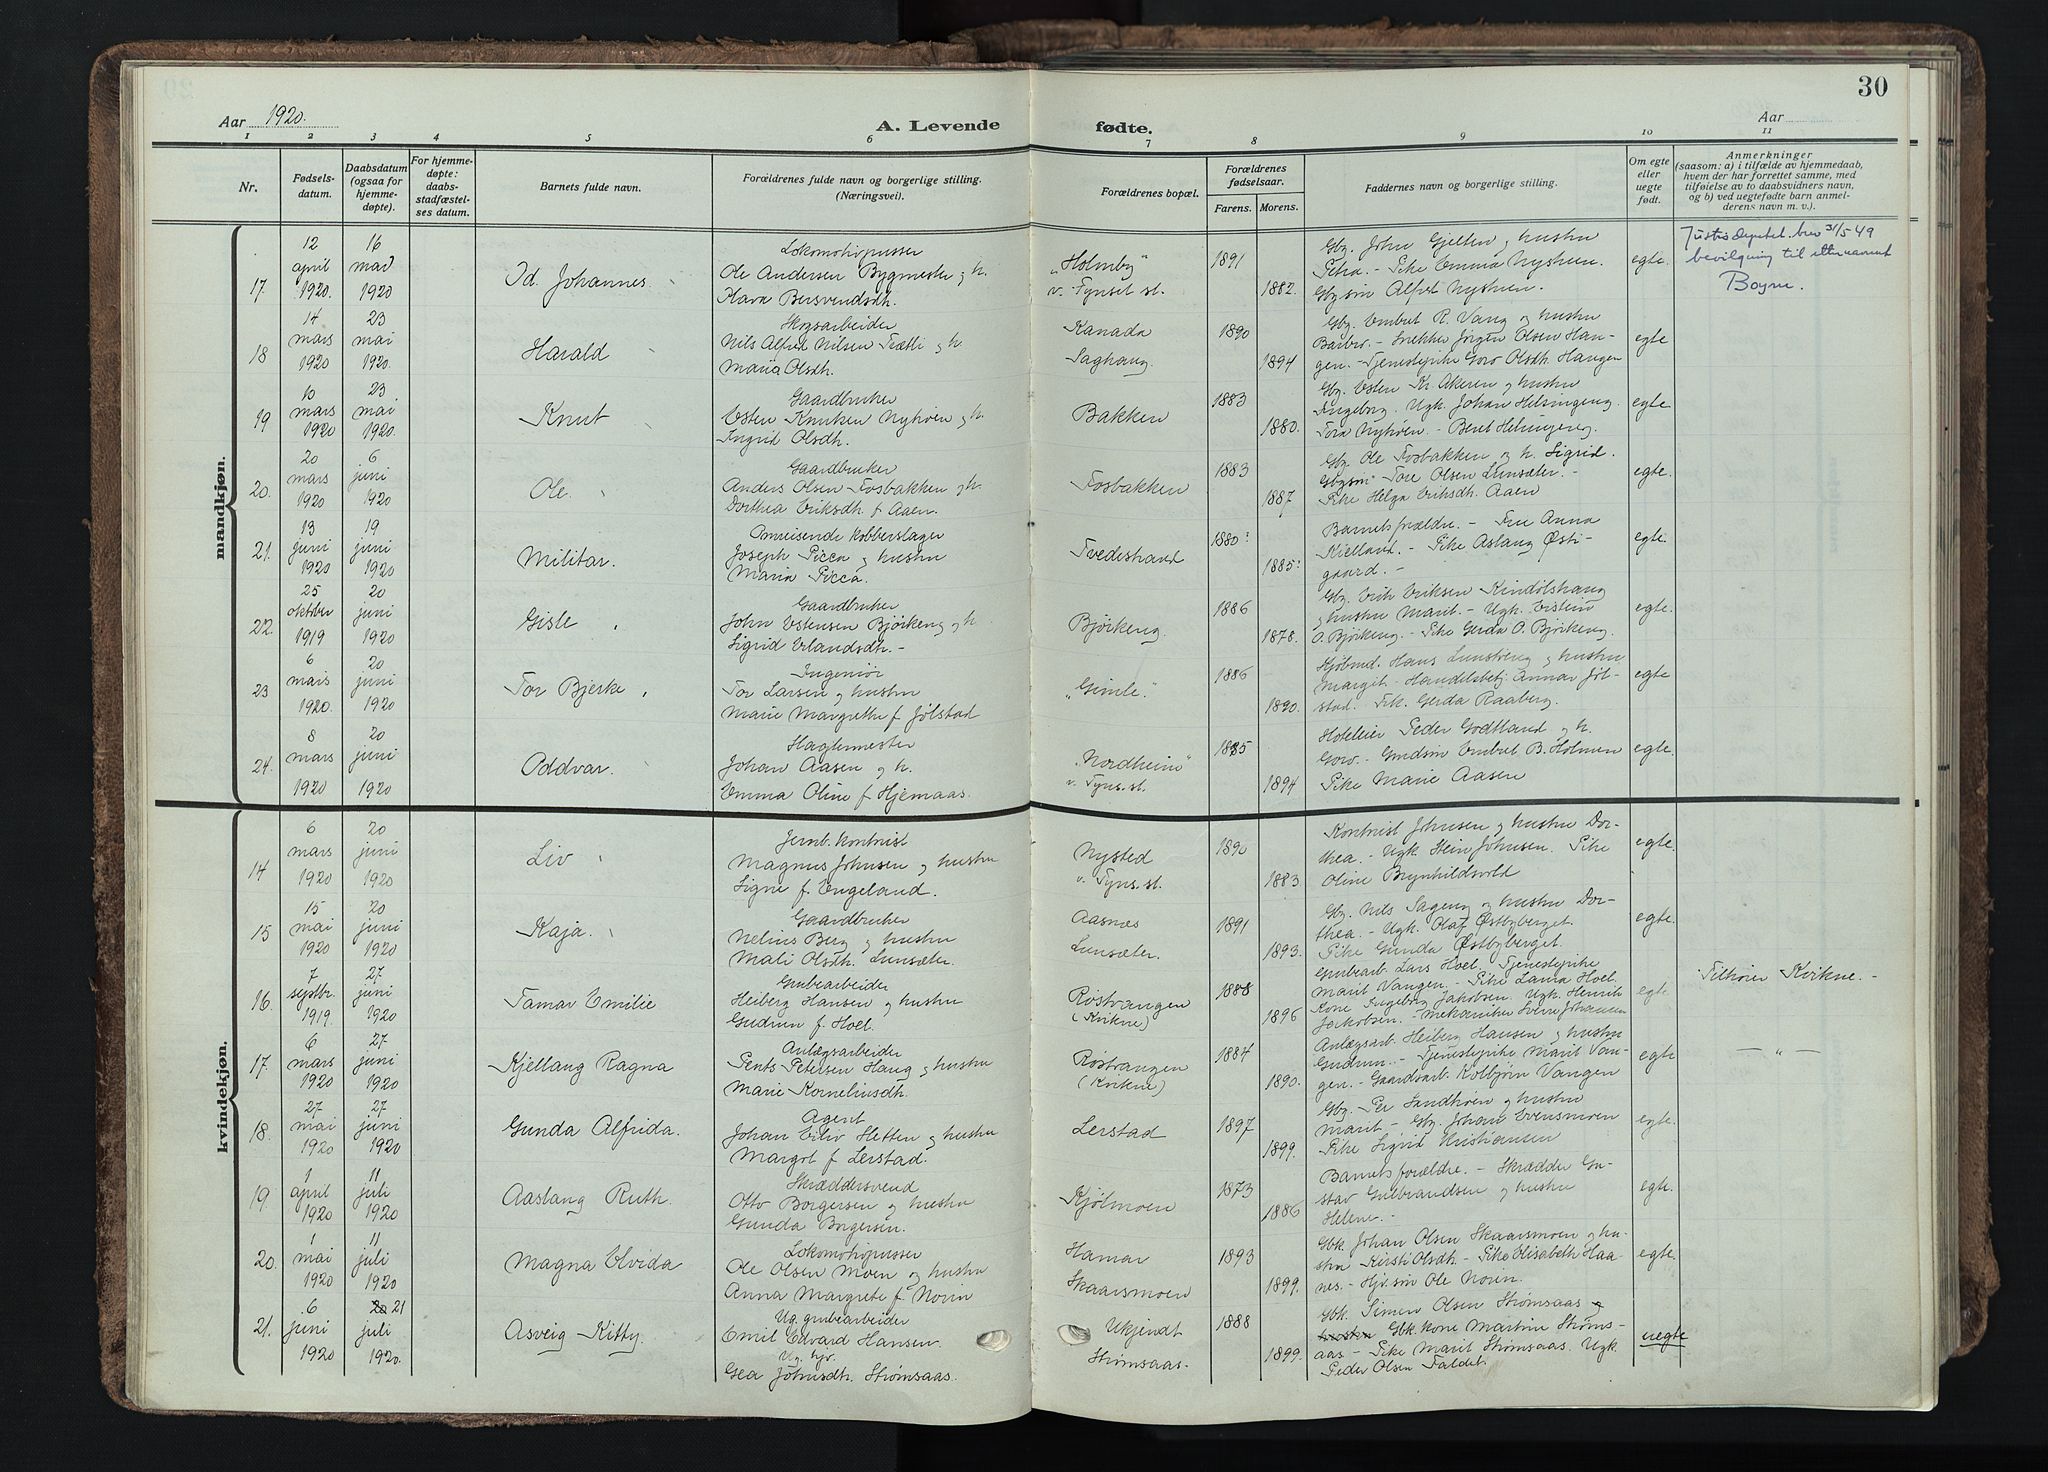 30
Aar 1920.
A. Levende fødte.
Aar
1 2 3 4 5 6 7 8 9 10 11
Nr.
Fødsels-
datum.
Daabsdatum
(ogsaa for
hjemme-
døpte).
For hjemme-
døpte:
daabs-
stadfæstel-
ses datum.
Barnets fulde navn.
Forældrenes fulde navn og borgerlige stilling.
(Næringsvei).
Forældrenes bopæl.
Forældrenes
fødselsaar.
Farens. Morens.
Faddernes navn og borgerlige stilling.
Om egte
eller
uegte
født.
Anmerkninger
(saasom: a) i tilfælde av hjemmedaab,
hvem der har forrettet samme, med
tilføielse av to daabsvidners navn,
og b) ved uegtefødte barn anmel-
derens navn m. v.).
mandkjøn.
17.
12
april
1920.
16
mai
1920
Id. Johannes.
Lokomotivpusser
Ole Andersen Bygmester og h.
Klara Bersvendsdh.
"Holmby"
v. Tynset st.
1891
1882.
Gbr. John Gjelten og hustru
Petra. - Pike Emma Nystuen.
Gbr.søn Alfred Nystuen.
egte.
Justisdeptet. brev 31/5 49
bevilgning til etternavnet
Boyne.
18
14
mars
1920
23
mai
1920.
Harald
Skogsarbeider
Nils Alfred Nilsen Trætli og h
Maria Olsdh.
Kanada
Saghaug.
1890
1894
Gbr. Embret R. Vang og hustru
Barbro. - Snekker Jørgen Olsen Hau-
gen. - Tjenestepike Goro Olsdh. Haugen
egte
19
10
mars
1920
23
mai
1920.
Knut
Gaardbruker
Esten Knutsen Nyhøen og h.
Ingrid Olsdh.
Bakken
1883
1880.
Gbr. Esten Kr. Akeren og hustru
Ingeborg. Ugk. Johan Helsingeng.
Tora Nyhøen. - Beret Helsingeng.
egte
20.
20
mars
1920
6
juni
1920
Ole.
Gaardbruker
Anders Olsen Fosbakken og h.
Dorthea Eriksdh. f Aaen.
Fosbakken
1883
1887
Gbr. Ole Fosbakken og h. Sigrid.
Gbr.søn. Tore Olsen Lunsæter. -
Pike Helga Eriksdh. Aaen
egte.
21.
13
juni
1920
19
juni
1920
Militar.
Omreisende kobberslager
Joseph Picca og hustru
Maria Picca.
Tvedestrand
1880?
1885?
Barnets forældre. - Frue Anna
Kielland. - Pike Aslaug Østi-
gaard. -
egte.
22.
25
oktober
1919
20
juni
1920
Gisle
Gaardbruker
John Estensen Bjørkeng og h.
Sigrid Erlandsdh. -
Bjørkeng.
1886
1878.
Gbr. Erik Eriksen Kindølshaug
og hustru Marit. - Ugk. Eistein
O. Bjørkeng. - Pike Gerda O. Bjørkeng.
egte.
23
6
mars
1920.
20
juni
1920
Tor Bjerke
Ingeniør
Tor Larsen og hustru
Marie Margrethe f Jølstad
"Gimle."
1886
1890.
Kjøbmd. Hans Lunstreng og hustru
Margit - Handelsbetj. Annar Jøl-
stad. Frk. Gerda Raaberg.
egte
24.
8
mars
1920
20
juni
1920
Oddvar.
Haglemester
Johan Aasen og h.
Emma Oline f Hjemaas.
"Nordheim"
v. Tyns. st.
1885
1894
Hoteleier Peder Godtland og h.
Goro. - Embret B. Holmen
Pike Marie Aasen
egte.
kvindekjøn.
14
6
mars
1920
20
juni
1920
Liv
Jernb. kontorist
Magnus Johnsen og hustru
Signe f. Engeland.
Nysted
v. Tyns. st.
1890
1883.
Kontorist Johnsen og hustru Dor-
thea. - Ugk. Hein Johnsen. Pike
Oline Brynhildsvold
egte.
15
15
mai
1920
20
juni
1920
Kaja.
Gaardbruker
Nelius Berg og hustru
Mali Olsdh. Lunsæter.
Aasnes
Lunsæter.
1891
1893.
Gbr. Nils Sageng og hustru Dor-
thea. - Ugk. Olaf Østbyberget.
Pike Gunda Østbyberget.
egte.
16.
7
septbr.
1919.
27.
juni
1920
Tamar Emilie
Grubearbeider
Heiberg Hansen og hustru
Gudrun f. Hoel.
Røstvangen
(Kvikne)
1888
1896
Grubearb. Lars Hoel. Tjenestepike
Marit Vangen. - Pike Laura Hoel
Kone Ingeborg Jakobsen. Ugk. Henrik
Jakobsen. - Mekaniker Sverre Johansen
egte.
Tilhører Kvikne. -
17.
6
mars
1920
27.
juni
1920
Kjellaug Ragna
Anlægsarbeider
Pents Petersen Haug og hustru
Marie Korneliusdh.
Røstvangen
(Kvikne)
1884
1890.
Anlægsarb. Heiberg Hansen og hustru
Gudrun. - Tjenestepike Marit Van-
gen. - Gaardsarb. Kolbjørn Vangen
egte
— " —
18.
27
mai
1920
27
juni
1920
Gunda Alfrida.
Agent
Johan Eiliv Hetten og hustru
Margot f Lerstad.
Lerstad
1897
1899.
Gbr. Per Sandhoen og hustru
Marit - Gbr. Johan Evensmoen
Pike Sigrid Kristiansen
egte.
19.
1
april
1920
11
juli
1920
Aaslaug Ruth.
Skræddersvend
Otto Borgersen og hustru
Gunda Borgersen.
Kjølmoen
1873
1886
Barnets forældre. - Skrædder Gu-
stav Gulbrandsen og hustru
Helene. -
egte.
20.
1
mai
1920
11
juli
1920
Magna Elvida
Lokomotivpusser
Ole Olsen Moen og hustru
Anna Margrete f. Norin
Hamar
Skaarsmoen
1893
1899.
Gbk. Johan Olsen Skaarsmoen og hu-
stru Kirsti Olsdh. - Pike Elisabeth Haa-
nes. - Hjv.søn Ole Norin.
egte.
21.
6
juni
1920
20 21
juli
1920.
Asveig Kitty.
Ug. grubearbeider
Emil Edvard Hansen.
Ug. hjv.
Gea Johnsdh. Strømsaas.
Ukjendt
Strømsaas.
1888
1899.
Gbk. Simen Olsen Strømsaas og
hustru Gbk. kone Martine Strøms-
aas - Pike Marit Strømsaas. Ugk
Peder Olsen Faldet.
uegte